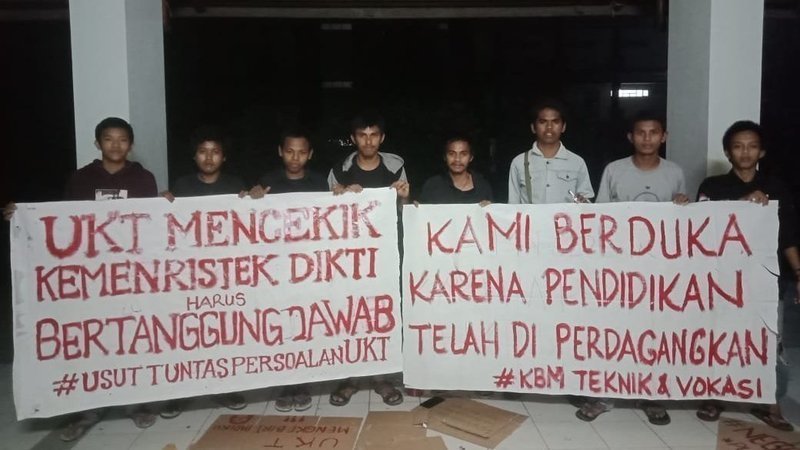 UKT MENCEKIK
KEMENRISTEK DIKTI
HARUS
BERTANGGUNG JAWAB
#USUT TUNTAS PERSOALAN UKT
KAMI BERDUKA
KARENA PENDIDIKAN
TELAH DI PERDAGANGKAN
#KBM TEKNIK & VOKASI
UKT